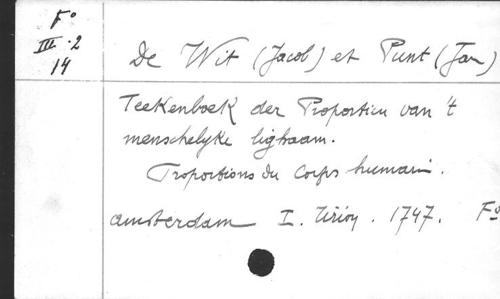 Fo
III.2
14
De Wit (Jacob) et Punt (Jan)
Teekenboek der Proportien van 't
menschelyke lighaam.
Proportions du Corps humain.
Amsterdam I. Tirion. 1747. Fo